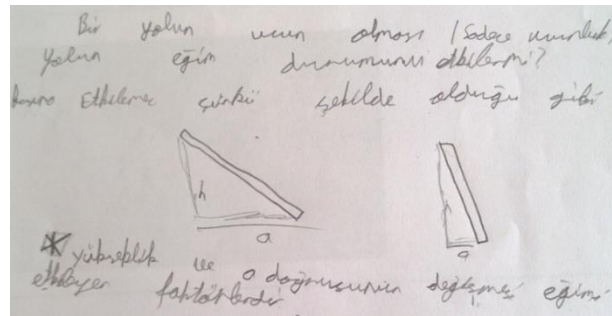 Bir yolun uzun olması (Sadece uzunluk)
yolun eğim durumunu etkilermi?
Etkilemez çünkü şekilde olduğu gibi
h
a
a
yükseklik ve a doğrusunun değişmesi eğimi
etkileyen faktörlerdir